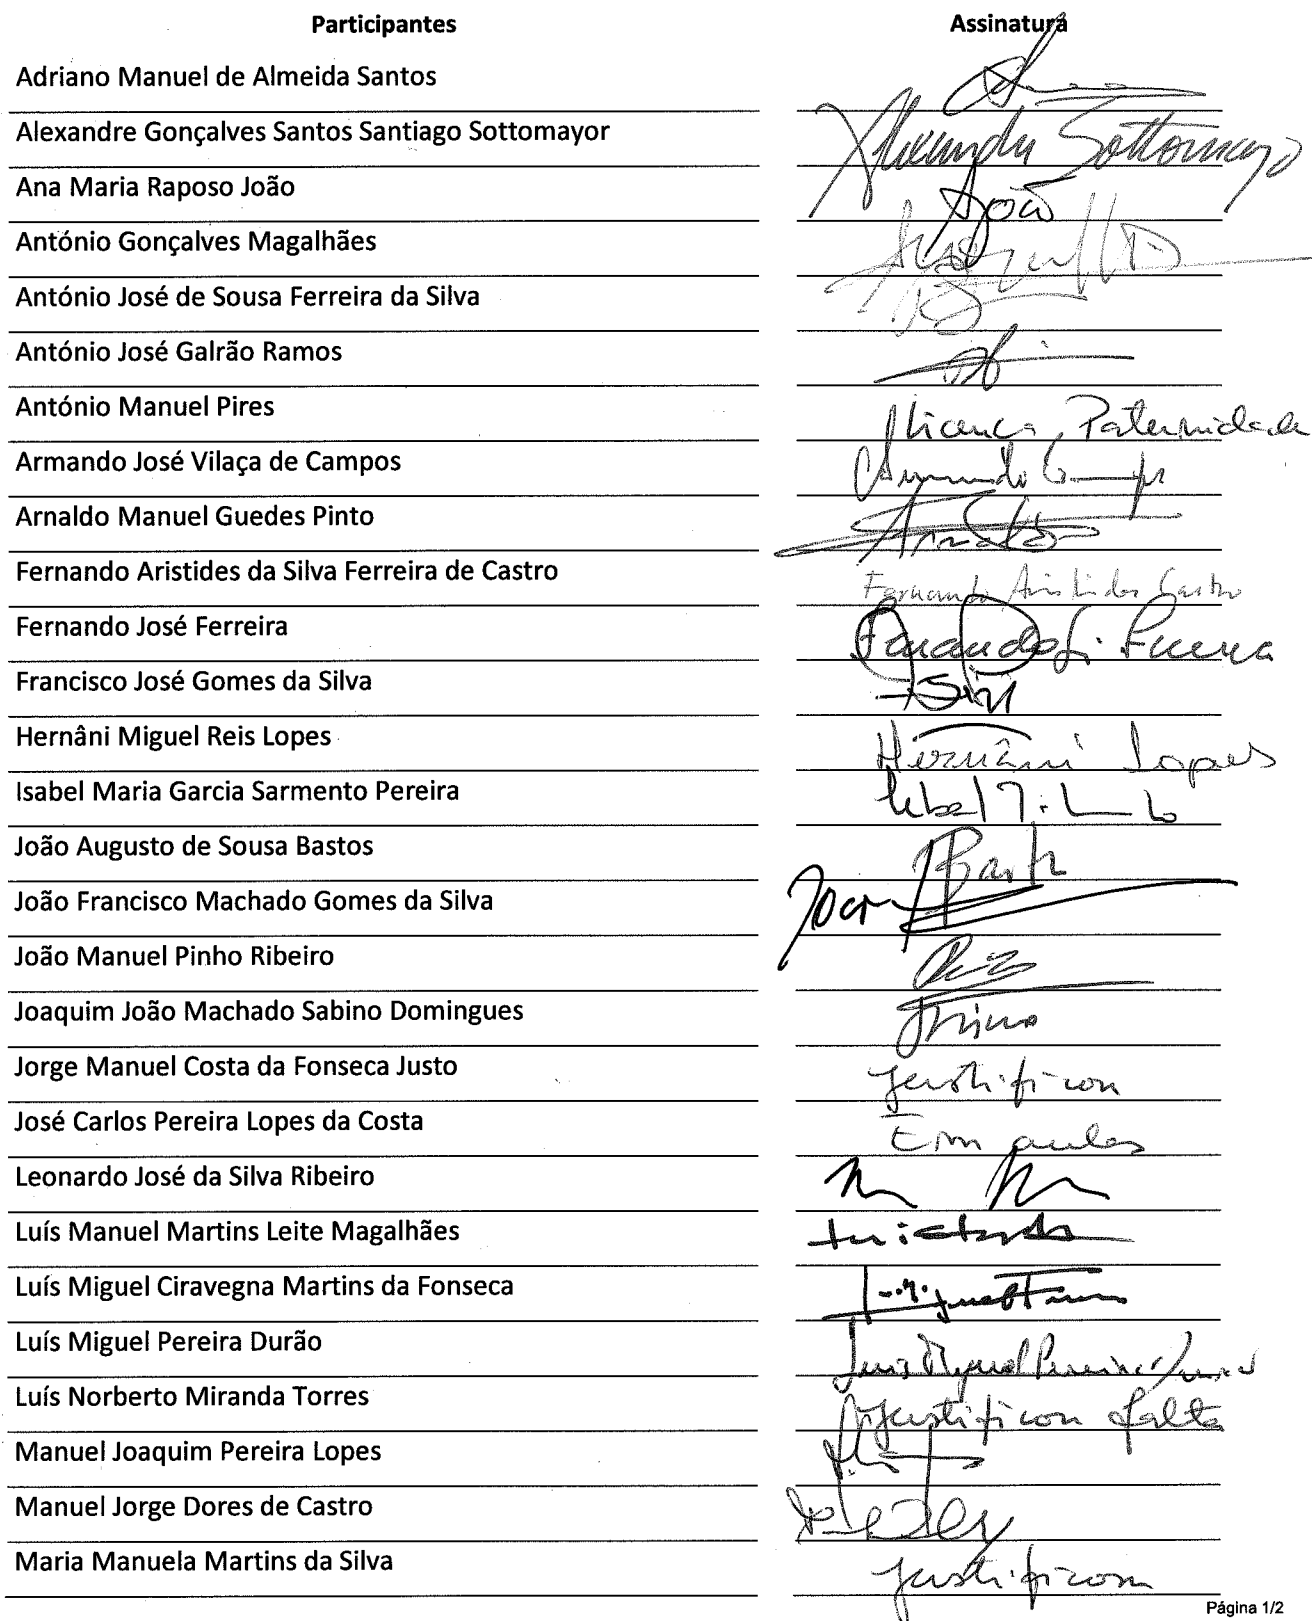 Participantes Assinatura
Adriano Manuel de Almeida Santos
Alexandre Gonçalves Santos Santiago Sottomayor Alexandre Sottomayor
Ana Maria Raposo João AJoão
António Gonçalves Magalhães
António José de Sousa Ferreira da Silva
António José Galrão Ramos
António Manuel Pires licença Paternidade
Armando José Vilaça de Campos Armando Campos
Arnaldo Manuel Guedes Pinto Arnaldo
Fernando Aristides da Silva Ferreira de Castro Fernando Aristides Castro
Fernando José Ferreira Fernando José Ferreira
Francisco José Gomes da Silva
Hernâni Miguel Reis Lopes Hernâni Lopes
Isabel Maria Garcia Sarmento Pereira Isabel
João Augusto de Sousa Bastos
João Francisco Machado Gomes da Silva João
João Manuel Pinho Ribeiro
Joaquim João Machado Sabino Domingues
Jorge Manuel Costa da Fonseca Justo justificou
José Carlos Pereira Lopes da Costa Em aulas
Leonardo José da Silva Ribeiro
Luís Manuel Martins Leite Magalhães
Luís Miguel Ciravegna Martins da Fonseca
Luís Miguel Pereira Durão Luis Miguel Pereira Durão
Luís Norberto Miranda Torres justificou falta
Manuel Joaquim Pereira Lopes
Manuel Jorge Dores de Castro
Maria Manuela Martins da Silva justificou
Página 1/2